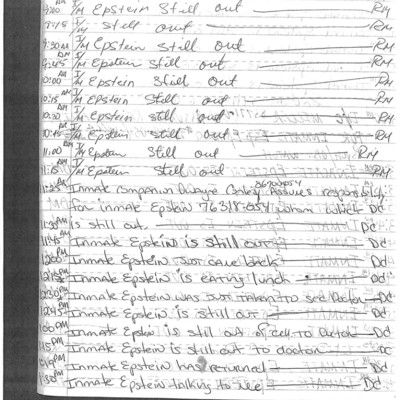 9:00 AM I/M Epstein Still out RM
9:15 I/M Still out RM
9:30 AM I/M Epstein Still out RM
9:45 AM I/M Epstein Still out RM
10:00 AM I/M Epstein Still out RM
10:15 AM I/M Epstein Still out RM
10:30 AM I/M Epstein Still out RM
10:45 AM I/M Epstein Still out RM
11:00 AM I/M Epstein Still out RM
11:15 AM I/M Epstein Still out RM
11:25 AM Inmate Companion Assumes responsibility
For inmate Epstein 76318-054 whom which DC
11:30 AM is still out. DC
11:45 AM Inmate Epstein is still out DC
12:00 PM Inmate Epstein just came back DC
12:15 PM Inmate Epstein is eating lunch DC
12:30 PM Inmate Epstein was just taken to see Doctor DC
12:45 PM Inmate Epstein is still out DC
1:00 PM Inmate Epstein is still out of cell to Doctor DC
1:15 PM Inmate Epstein is still out to doctor DC
1:19 PM Inmate Epstein has returned DC
1:30 PM Inmate Epstein talking to me DC